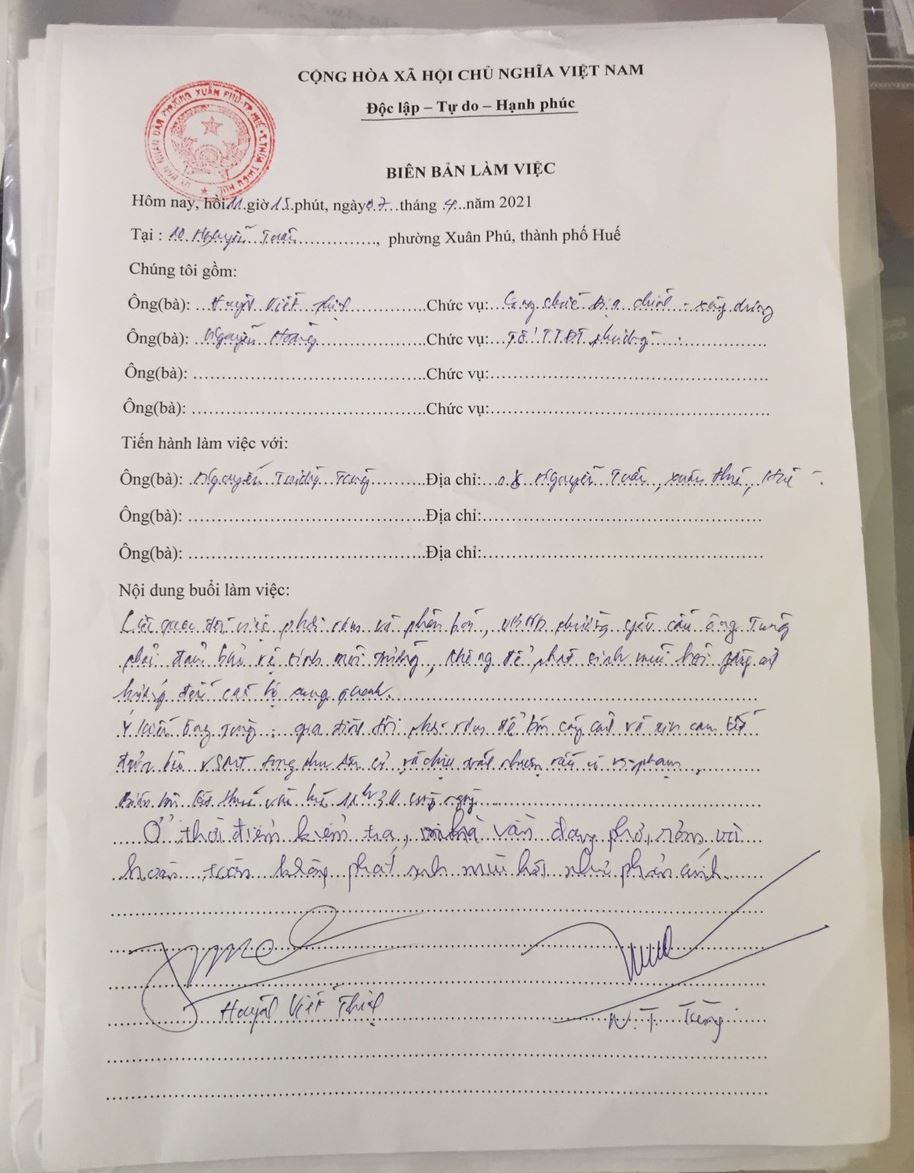 CỘNG HÒA XÃ HỘI CHỦ NGHĨA VIỆT NAM
Độc lập – Tự do – Hạnh phúc
BIÊN BẢN LÀM VIỆC
Hôm nay, hồi 11 giờ 15 phút, ngày 07 tháng 4 năm 2021
Tại : 10 Nguyễn Tuân, phường Xuân Phú, thành phố Huế
Chúng tôi gồm:
Ông(bà): Huỳnh Viết Thịnh Chức vụ: Công chức địa chính - xây dựng
Ông(bà): Nguyễn Hoàng Chức vụ: Tổ TTĐT phường
Ông(bà): Chức vụ:
Ông(bà): Chức vụ:
Tiến hành làm việc với:
Ông(bà): Nguyễn Tùng Địa chỉ: Nguyễn Tuân, Xuân Phú, Huế
Ông(bà): Địa chỉ:
Ông(bà): Địa chỉ:
Nội dung buổi làm việc:
việc phơi rơm và phân bón, UBND phường yêu cầu ông Tùng
phải đảm bảo vệ sinh môi trường, không để phát sinh mùi hôi gây ảnh
hưởng đến các hộ xung quanh.
Ý kiến ông Tùng: gia đình tôi phơi rơm để và xin cam kết
đảm bảo VSMT và chịu trách nhiệm nếu vi phạm
Biên bản kết thúc vào lúc 11h30 cùng ngày
Ở thời điểm kiểm tra, nhà vẫn đang phơi rơm và
hoàn toàn không phát sinh mùi hôi như phản ánh.
Huỳnh Viết Thịnh N. T. Tùng
ỦY BAN NHÂN DÂN PHƯỜNG XUÂN PHÚ-TP HUẾ-T.THỪA THIÊN HUẾ